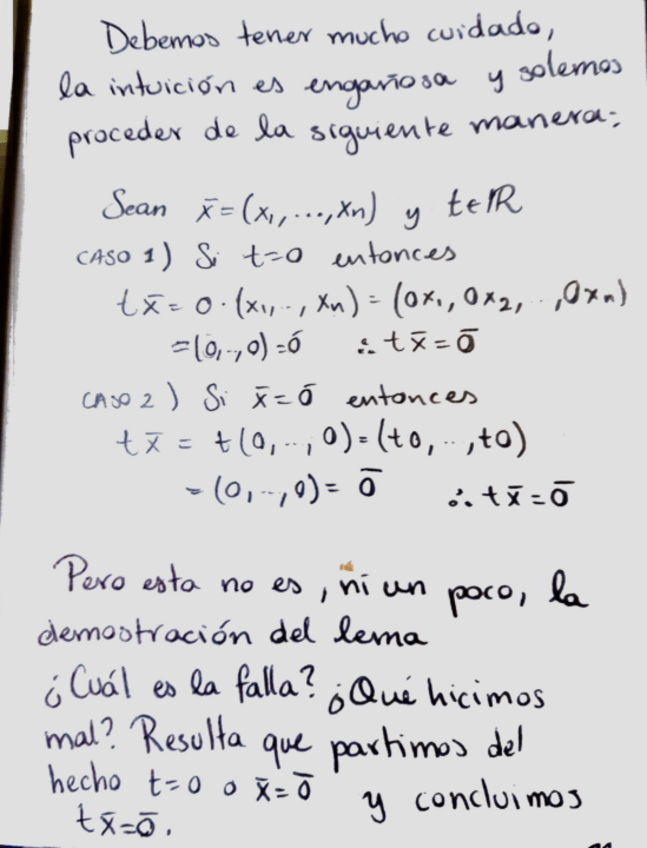 Debemos tener mucho cuidado,
la intuición es engañosa y solemos
proceder de la siguiente manera:
Sean x̄=(x₁,...,xₙ) y t∈ℝ
CASO 1) Si t=0 entonces
tx̄=0·(x₁,..,xₙ)=(0x₁,0x₂,..,0xₙ)
=(0,..,0)=0̄ ∴ tx̄=0̄
CASO 2) Si x̄=0̄ entonces
tx̄ = t(0,..,0)=(t0,..,t0)
=(0,..,0)=0̄ ∴ tx̄=0̄
Pero esta no es, ni un poco, la
demostración del lema
¿Cuál es la falla? ¿Qué hicimos
mal? Resulta que partimos del
hecho t=0 o x̄=0̄ y concluimos
tx̄=0̄.